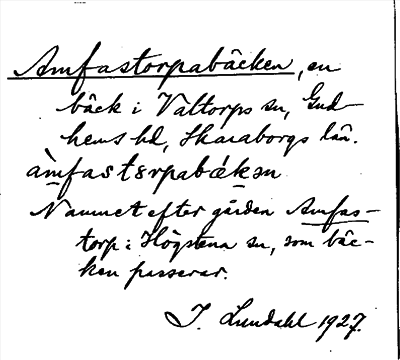 Amfastorpabäcken, en
bäck i Valtorps sn, Gud-
hems hd, Skaraborgs län.
àmfastɛrpabǽkən
Namnet efter gården Amfas-
torp i Högstena sn, som bäc-
ken passerar.
I. Lundahl 1927.